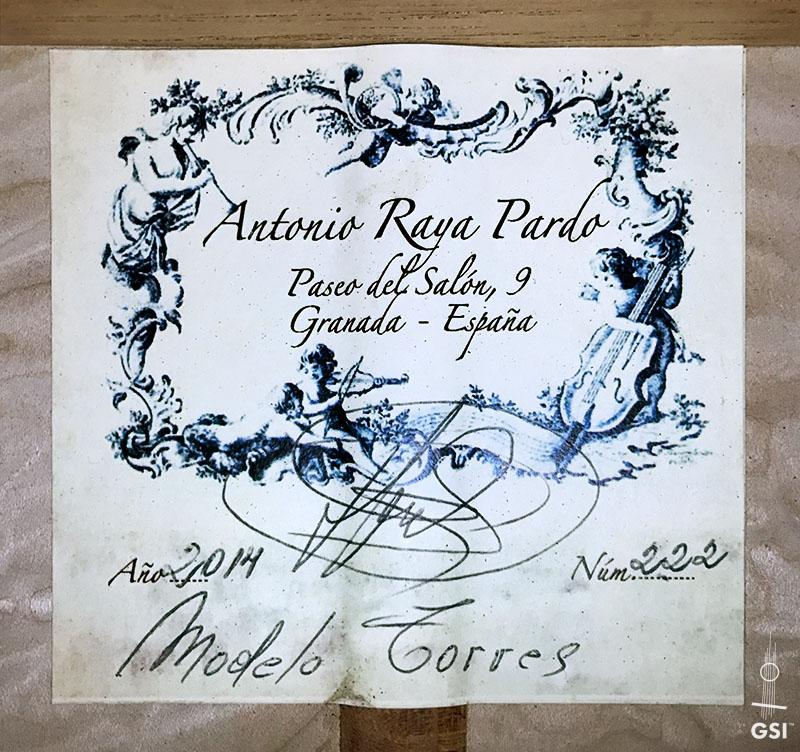 Antonio Raya Pardo
Paseo del Salón, 9
Granada - España
Año 2014
Núm. 222
Modelo Torres
GSI